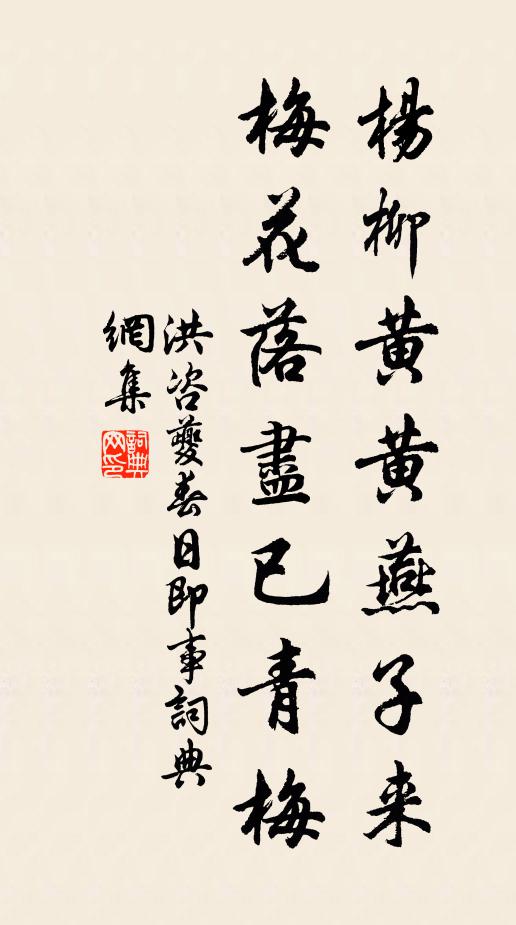 楊柳黄黄燕子来
梅花落盡已青梅
洪咨夔春日即事詞典
網集
詞典網印